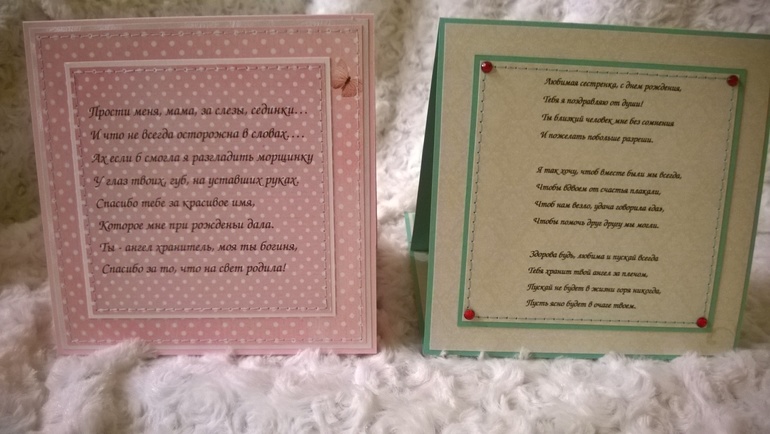 Прости меня, мама, за слезы, сединки…
И что не всегда осторожна в словах….
Ах если б смогла я разгладить морщинку
У глаз твоих, губ, на уставших руках.
Спасибо тебе за красивое имя,
Которое мне при рожденьи дала.
Ты - ангел хранитель, моя ты богиня,
Спасибо за то, что на свет родила!
Любимая сестренка, с днем рождения,
Тебя я поздравляю от души!
Ты близкий человек мне без сомнения
И пожелать побольше разреши.
Я так хочу, чтоб вместе были мы всегда,
Чтобы вдвоем от счастья плакали,
Чтоб нам везло, удача говорила «да»,
Чтобы помочь друг другу мы могли.
Здорова будь, любима и пускай всегда
Тебя хранит твой ангел за плечом,
Пускай не будет в жизни горя никогда,
Пусть ясно будет в очаге твоем.